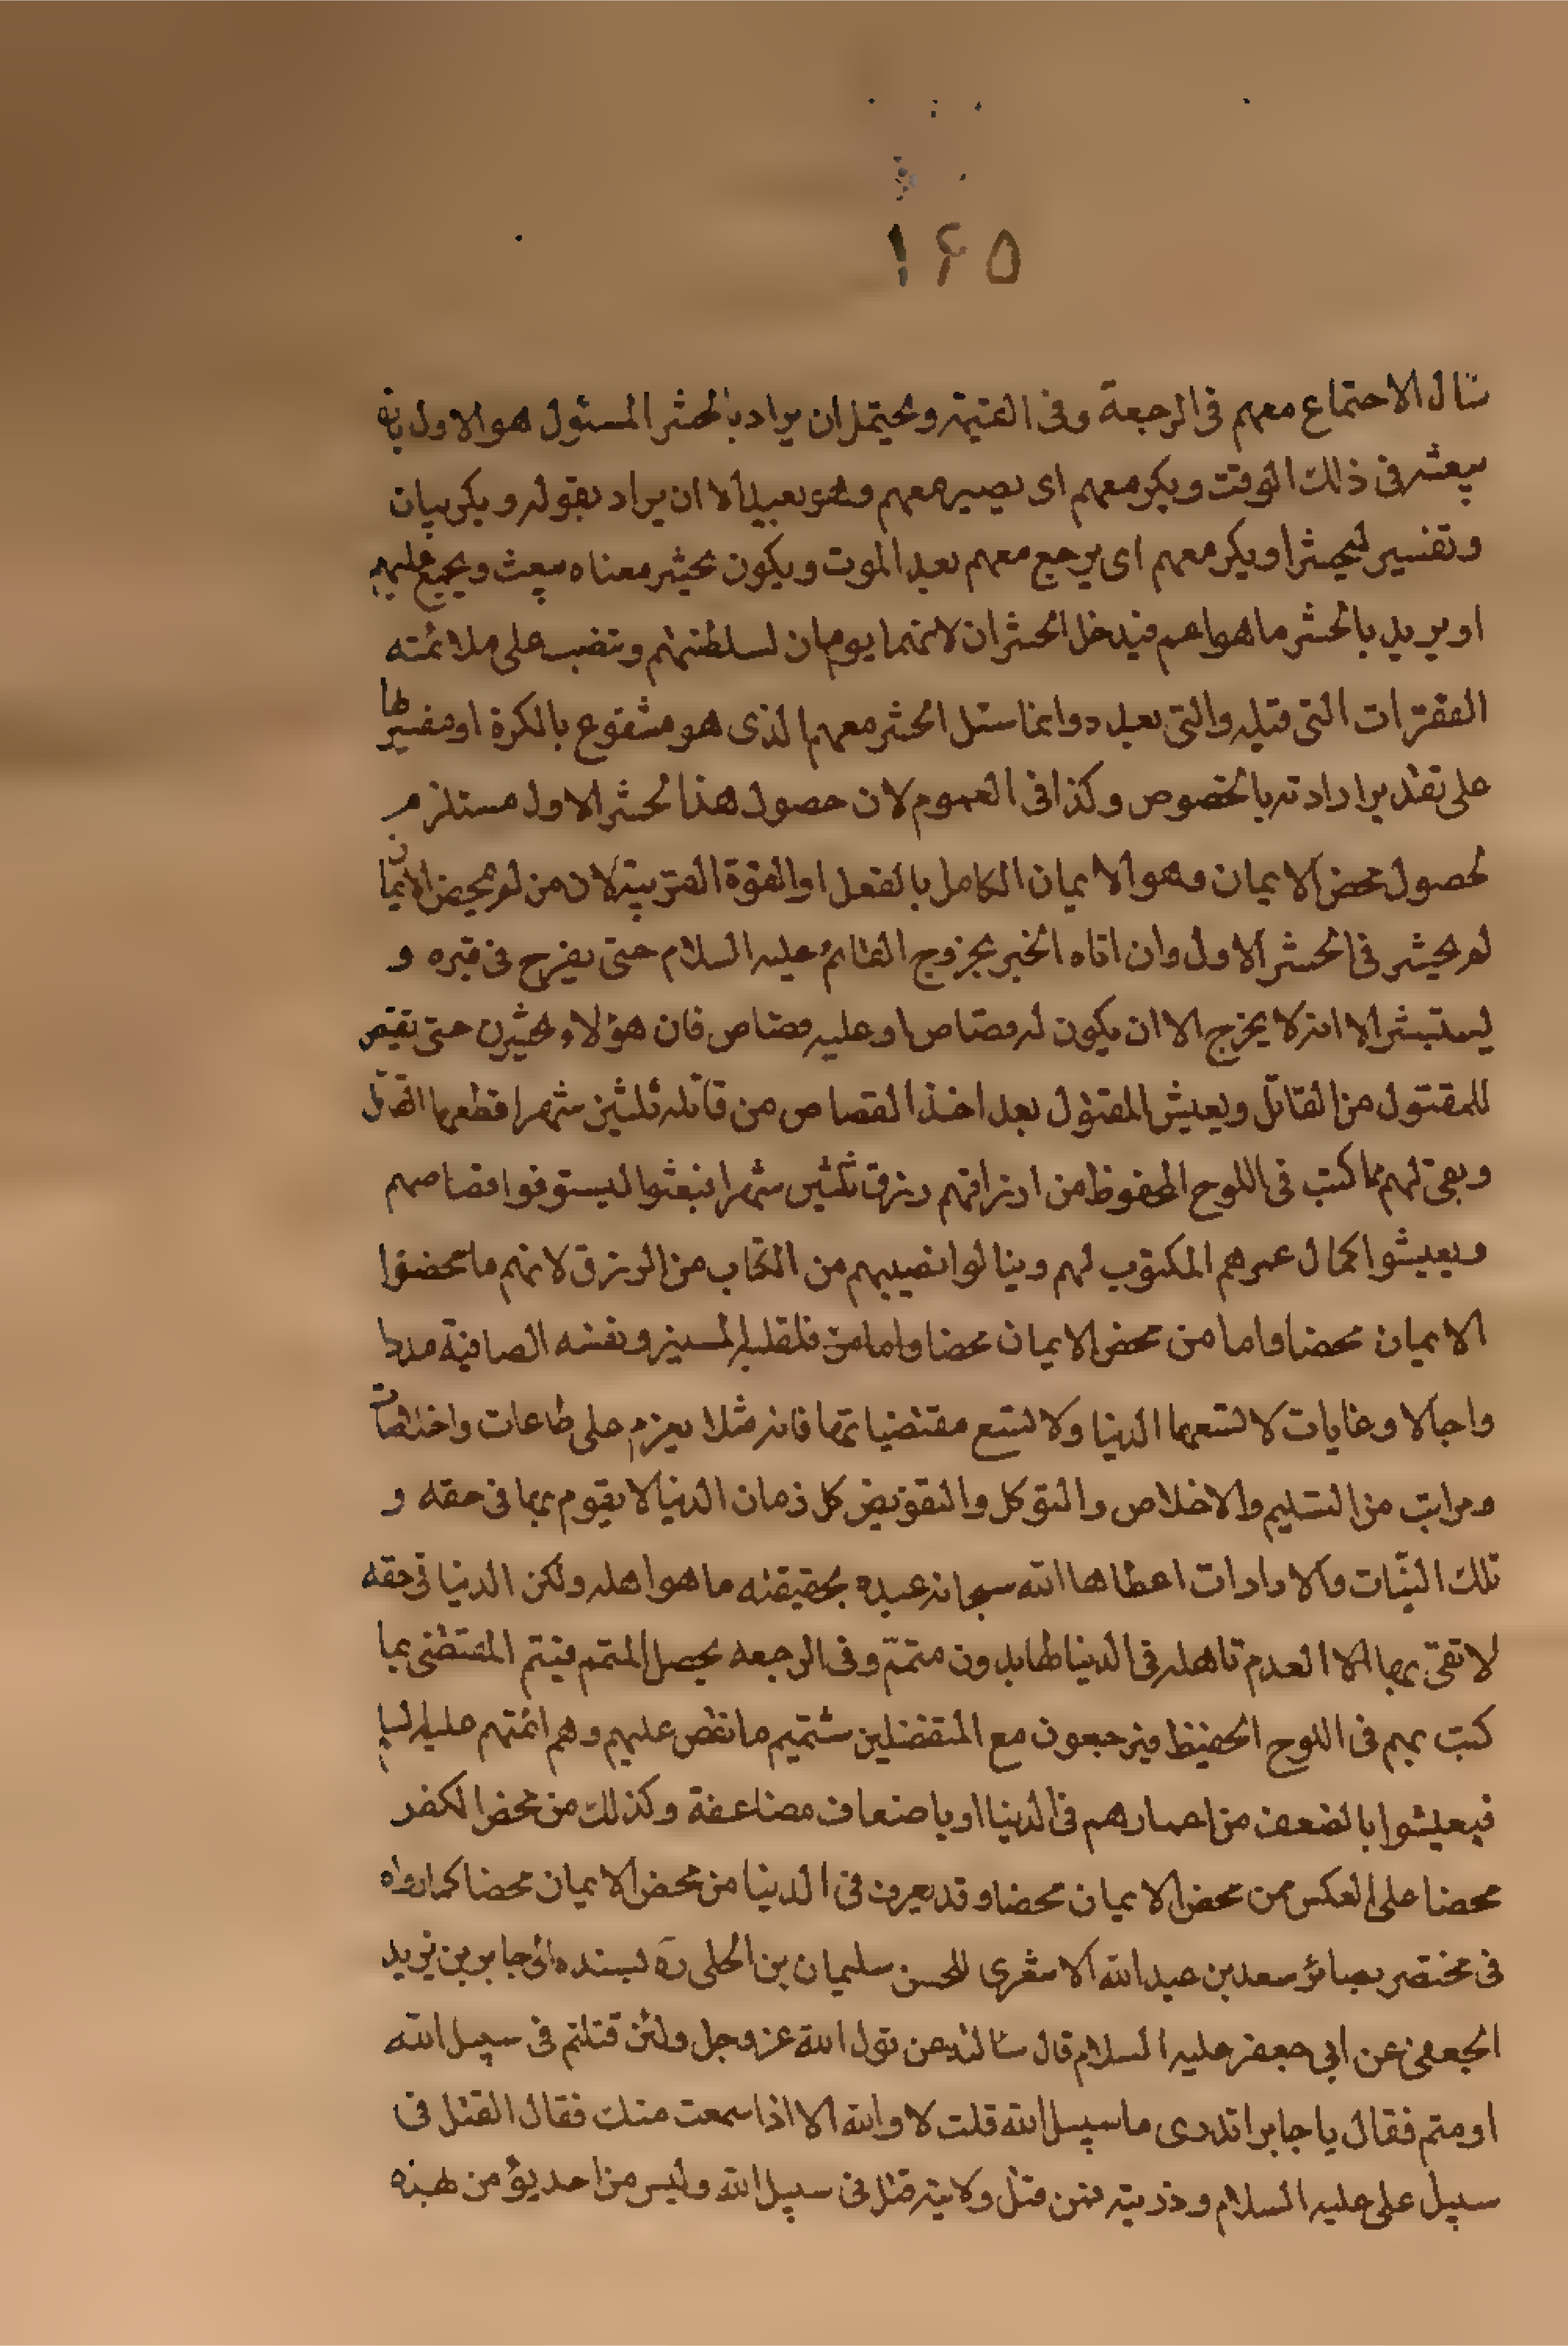 ١۶۵
سأل الاجتماع معهم فى الرجعة وفى القيمة ويحتمل ان يراد بالحشر المسئول هو الاول بان
يبعثه فى ذلك الوقت ويكر معهم اى يصير معهم وهو بعيد الا ان يراد بقوله ويكر بيان
وتفسير ليحشر او يكر معهم اى يرجع معهم بعد الموت ويكون يحشر معناه يبعث ويجمع عليهم
او يريد بالحشر ما هو اعم فيدخل الحشران لانهما يومان لسلطنتهم وتنصب على ملائمته
الفقرات التى قبله والتى بعده وانما سئل الحشر معهم الذى هو مشفوع بالكرة او مفسر بها
على تقدير ارادته بالخصوص وكذا فى العموم لان حصول هذا الحشر الاول مستلزم
لحصول محض الايمان وهو الايمان الكامل بالفعل او القوة القريبة لان من لم يمحض الايمان
لم يحشر فى الحشر الاول وان اتاه الخبر بخروج القائم عليه السلام حتى يفرح فى قبره و
يستبشر الا انه لا يخرج الا ان يكون له قصاص او عليه قصاص فان هؤلاء يحشرون حتى يقتص
للمقتول من القاتل ويعيش المقتول بعد اخذ القصاص من قاتله ثلثين شهرا قطعها القاتل
وبقى لهم مما كتب فى اللوح المحفوظ من ارزاقهم رزق ثلثين شهرا فبعثوا ليستوفوا قصاصهم
ويعيشوا كمال عمرهم المكتوب لهم وينالوا نصيبهم من الكتاب من الرزق لانهم ما محضوا
الايمان محضا واما من محض الايمان محضا واما من فلقلبه المنير ونفسه الصافية مددا
واجالا وغايات لا تسعها الدنيا ولا تسع مقتضياتها فانه مثلا يعزم على طاعات واخلاصات
ومراتب من التسليم والاخلاص والتوكل والتفويض كل زمان الدنيا لا يقوم بها فى حقه و
تلك النيّات والارادات اعطاها الله سبحانه عبده بحقيقته ما هو اهله ولكن الدنيا فى حقه
لا تفى بها الا العدم تاهله فى الدنيا لها بدون متمّم وفى الرجعه يحصل المتمم فيتم المقتضى بما
كتب بهم فى اللوح الحفيظ فيرجعون مع المتفضلين بتتميم ما نقص عليهم وهم ائمتهم عليهم السلام
فيعيشوا بالضعف من اعمارهم فى الدنيا او باضعاف مضاعفة وكذلك من محض الكفر
محضا على العكس من محض الايمان محضا وقد يعرف فى الدنيا من محض الايمان محضا كما رواه
فى مختصر بصائر سعد بن عبد الله الاشعرى للحسن سليمان بن الحلى ره بسنده الى جابر بن يزيد
الجعفى عن ابى جعفر عليه السلام قال سألته عن قول الله عز وجل ولئن قتلتم فى سبيل الله
او متم فقال يا جابر اتدرى ما سبيل الله قلت لا والله الا اذا سمعت منك فقال القتل فى
سبيل على عليه السلام وذريته فمن قتل ولايته قتل فى سبيل الله وليس من احد يؤمن بهذه